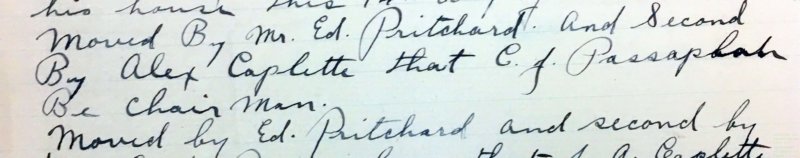 his house this
Moved By Mr. Ed. Pritchard. And Second
By Alex Caplette that C. J.
Be Chair Man.
Moved by Ed. Pritchard and second by
that J. A. Caplette